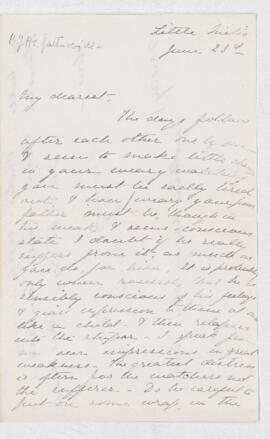 Little
June 23rd
My dearest.
The days follow
after each other one by one
I seem to make little
in your weary watching
you must be sadly tired
out. How weary your poor
father must be, though in
his weak & semi-conscious
state I doubt if he really
suffers from it, as much as
you do for him. It is probably
only when roused, that he is
sensibly conscious of his feelings
& gives expression to them at all
like a child. & then relapses
into the stupor. I speak from
my own impressions in great
weakness. The greatest distress
is often for the watchers not
the sufferer. Do be careful to
put on some wrap in the